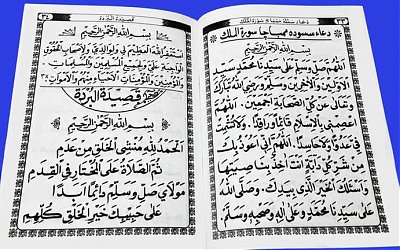 دعاء سسوده ممباچا سورة الملك
بسم الله الرحمن الرحيم
اللهم صل وسلم على سيدنا محمد سيد
الأولين والآخرين وسلم ورضي الله تبارك
وتعالى عن كل الصحابة أجمعين. اللهم
بالإسلام قائما وراقدا. ولا تشمت
في عدوا ولا حاسدا. اللهم إني أعوذ بك
من شر كل دابة أنت آخذ بناصيتها
وأسئلك الخير الذي بيدك. وصلى الله
على سيدنا محمد وعلى آله وصحبه وسلم.
٣٤
قصيدة البردة
بسم الله الرحمن الرحيم
أستغفر الله العظيم لي ولوالدي ولأصحاب الحقوق
الواجبة علي ولجميع المسلمين والمسلمات
والمؤمنين والمؤمنات الأحياء منهم والأموات
قصيدة البردة
بسم الله الرحمن الرحيم
الحمد لله منشي الخلق من عدم
ثم الصلاة على المختار في القدم
مولاي صل وسلم دائما أبدا
على حبيبك خير الخلق كلهم